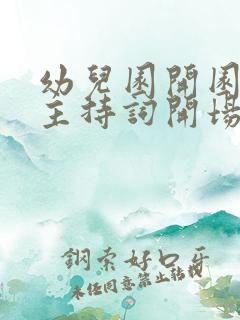 幼兒園開園
主持詞開場
鋼索好口牙
未經同意禁止轉載